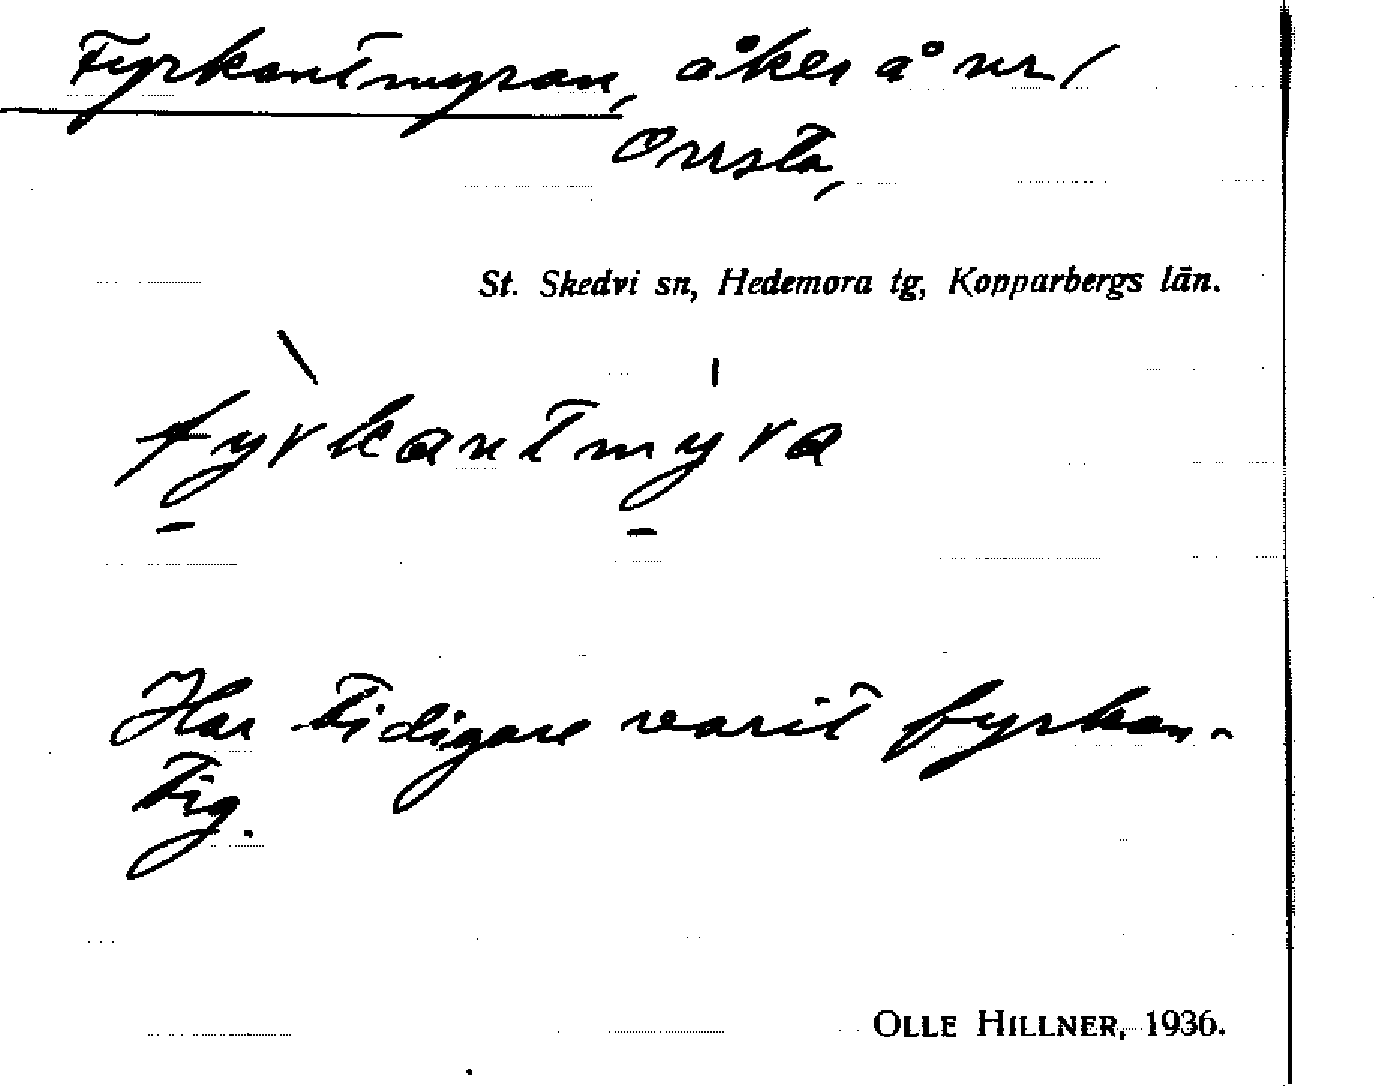 Fyrkantmyran, åker å nr 1
Onsta,
St. Skedvi sn, Hedemora tg, Kopparbergs län.
fyrkantmyra
Har tidigare varit fyrkan-
tig.
OLLE HILLNER, 1936.